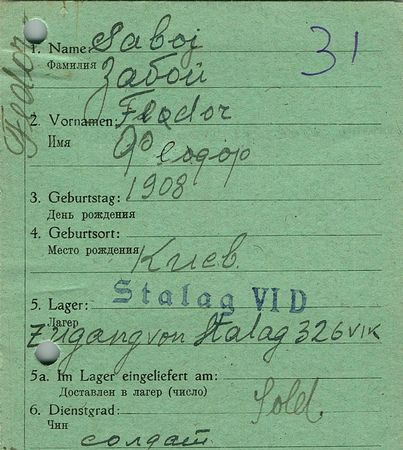 31
1. Name: Saboj
Фамилия Забой
2. Vornamen: Feodor
Имя Феодор
Fedor
3. Geburtstag: 1908
День рождения
4. Geburtsort:
Место рождения Киев.
Stalag VI D
5. Lager:
Лагерь Zugang von Stalag 326 VI K
5a. Im Lager eingeliefert am:
Доставлен в лагер (число)
6. Dienstgrad: Sold.
Чин солдат